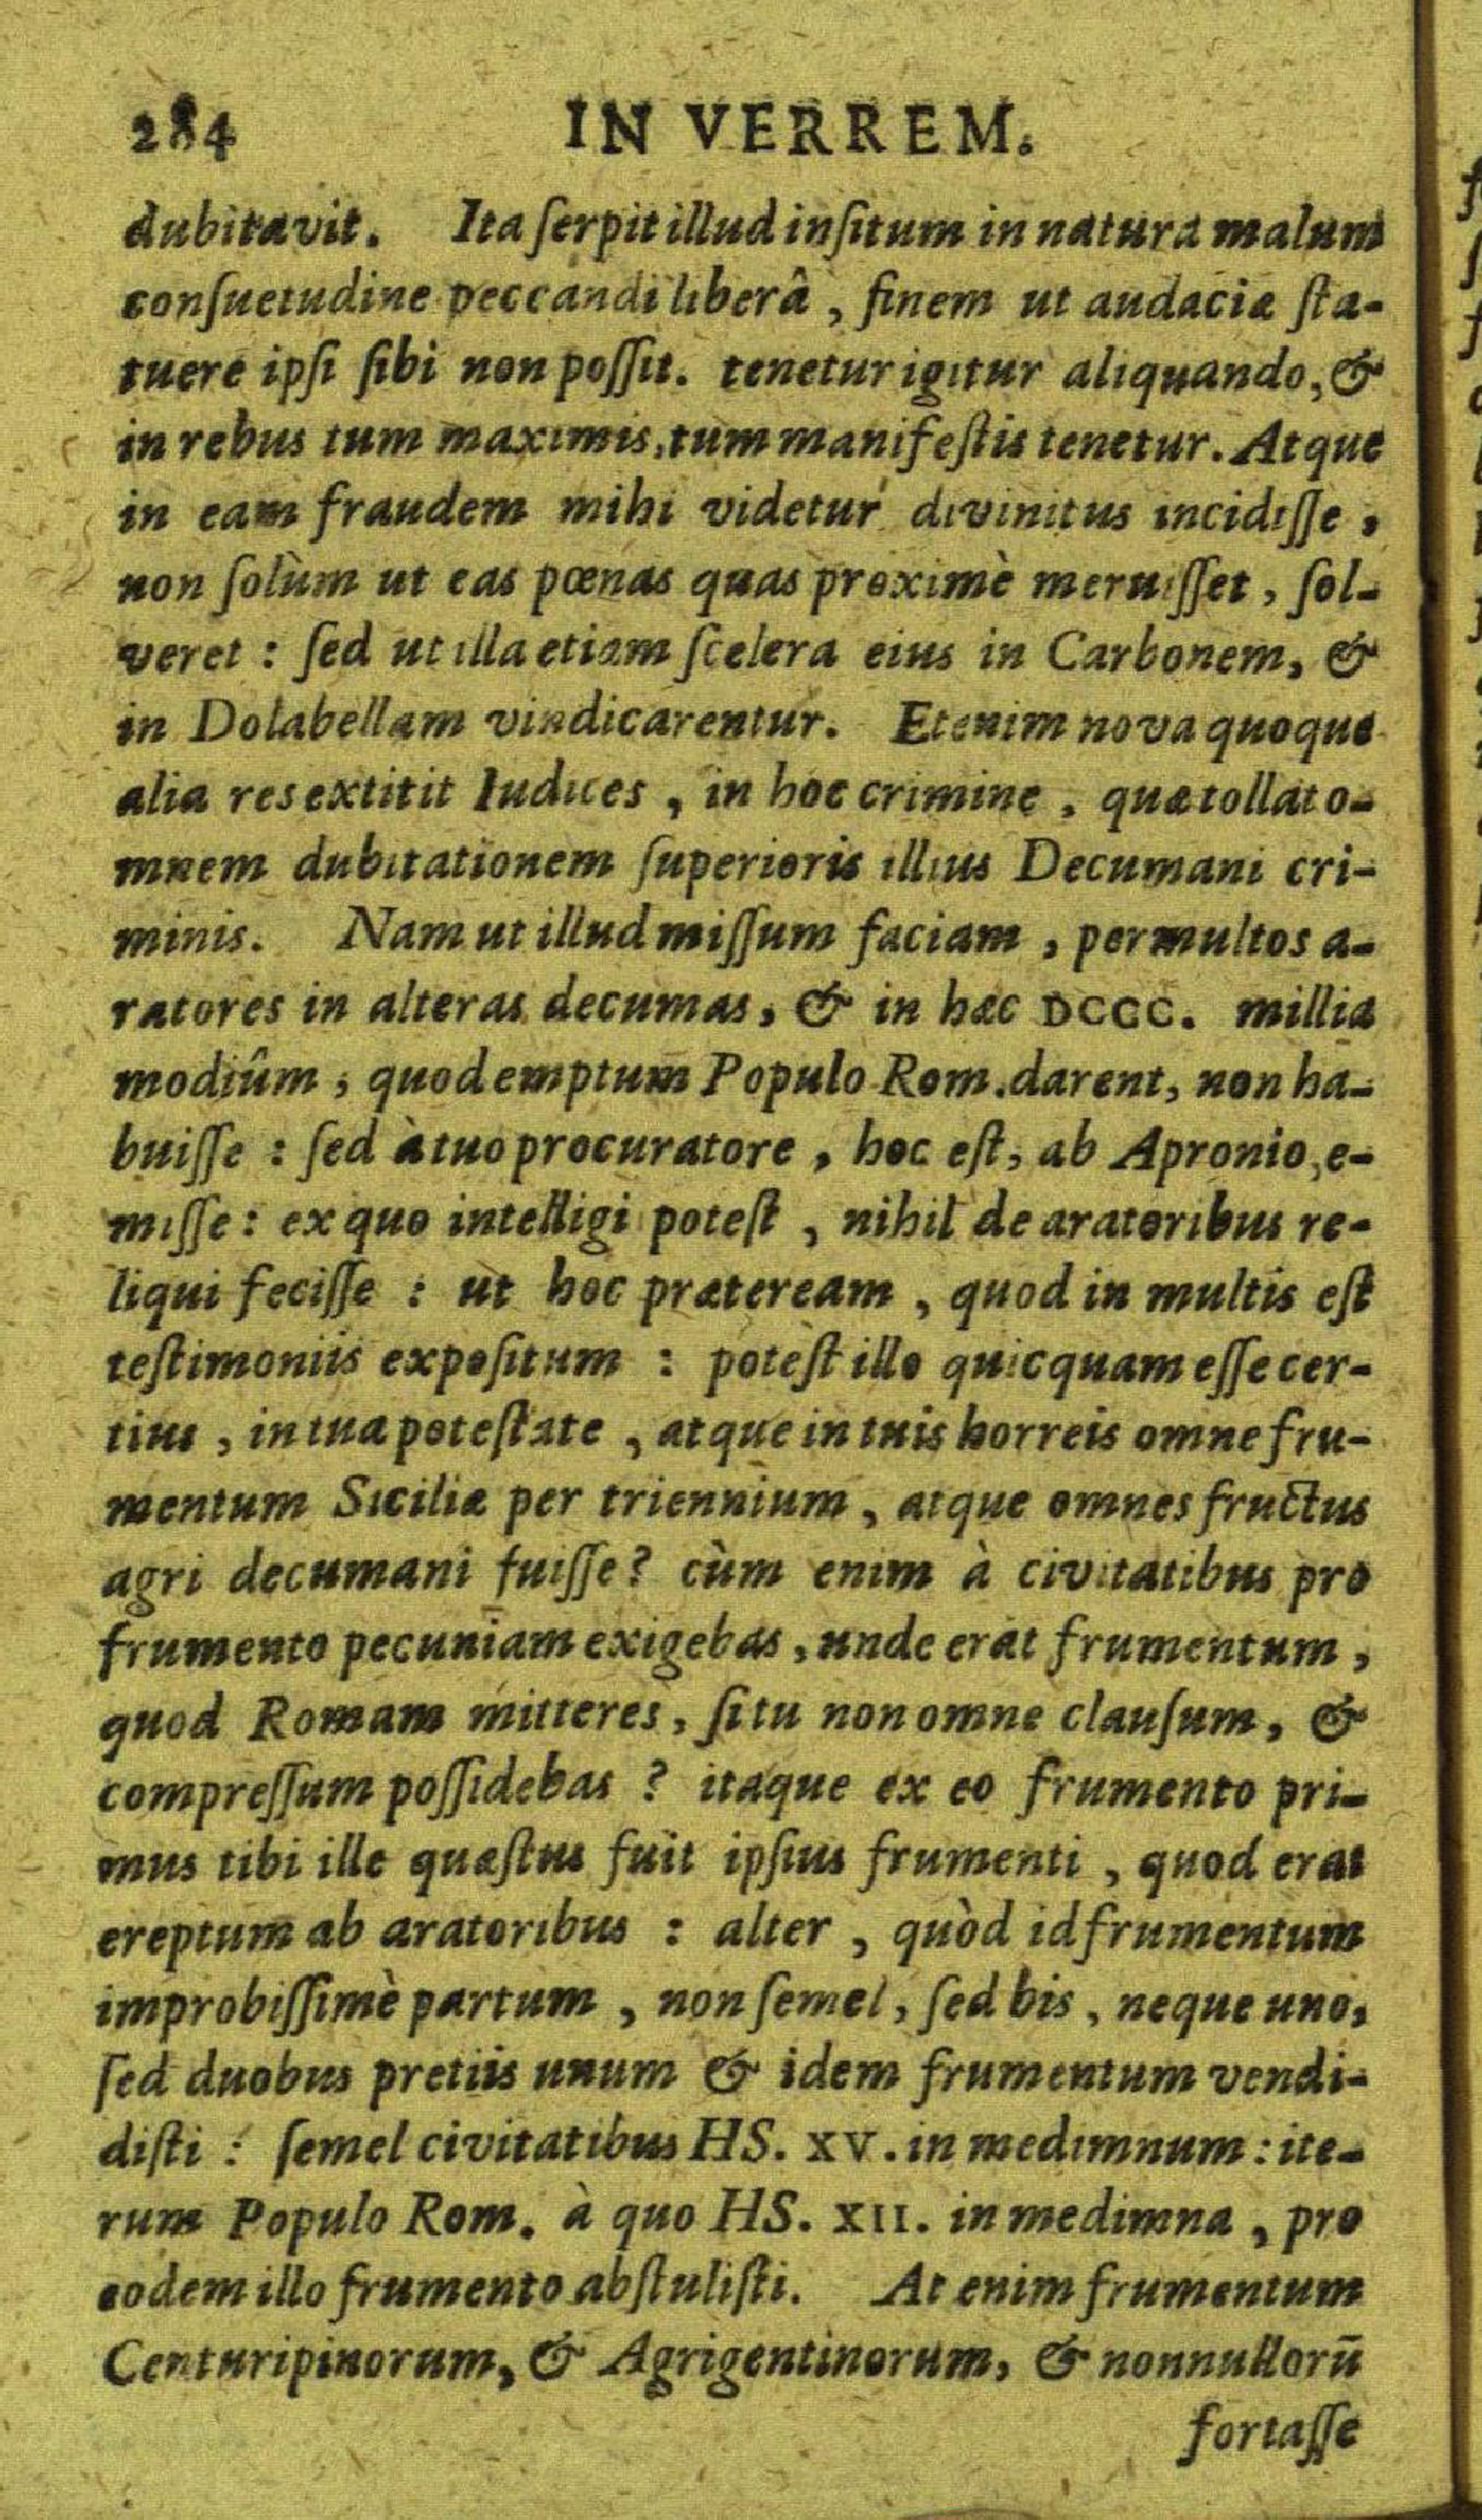 284 IN VERREM.
dubitavit. Ita ſerpit illud inſitum in natura malum
conſuetudine peccandi liberâ, finem ut audaciæ ſta-
tuere ipſi ſibi non poſſit. tenetur igitur aliquando, &
in rebus tum maximis, tum manifeſtis tenetur. Atque
in eam fraudem mihi videtur divinitus incidiſſe,
non ſolùm ut eas pœnas quas proximè meruiſſet, ſol-
veret: ſed ut illa etiam ſcelera eius in Carbonem, &
in Dolabellam vindicarentur. Etenim nova quoque
alia res extitit Iudices, in hoc crimine, quæ tollat o-
mnem dubitationem ſuperioris illius Decumani cri-
minis. Nam ut illud miſſum faciam, permultos a-
ratores in alteras decumas, & in hæc DCCC. millia
modiûm, quod emptum Populo Rom. darent, non ha-
buiſſe: ſed à tuo procuratore, hoc eſt, ab Apronio, e-
miſſe: ex quo intelligi poteſt, nihil de aratoribus re-
liqui feciſſe: ut hoc præteream, quod in multis eſt
teſtimoniis expoſitum: poteſt illo quicquam eſſe cer-
tius, in tua poteſtate, atque in tuis horreis omne fru-
mentum Siciliæ per triennium, atque omnes fructus
agri decumani fuiſſe? cùm enim à civitatibus pro
frumento pecuniam exigebas, unde erat frumentum,
quod Romam mitteres, ſi tu non omne clauſum, &
compreſſum poſſidebas? itaque ex eo frumento pri-
mus tibi ille quæſtus fuit ipſius frumenti, quod erat
ereptum ab aratoribus: alter, quòd id frumentum
improbiſſimè partum, non ſemel, ſed bis, neque uno,
ſed duobus pretiis unum & idem frumentum vendi-
diſti: ſemel civitatibus HS. XV. in medimnum: ite-
rum Populo Rom. à quo HS. XII. in medimna, pro
eodem illo frumento abſtuliſti. At enim frumentum
Centuripinorum, & Agrigentinorum, & nonnullorū
fortaſſe